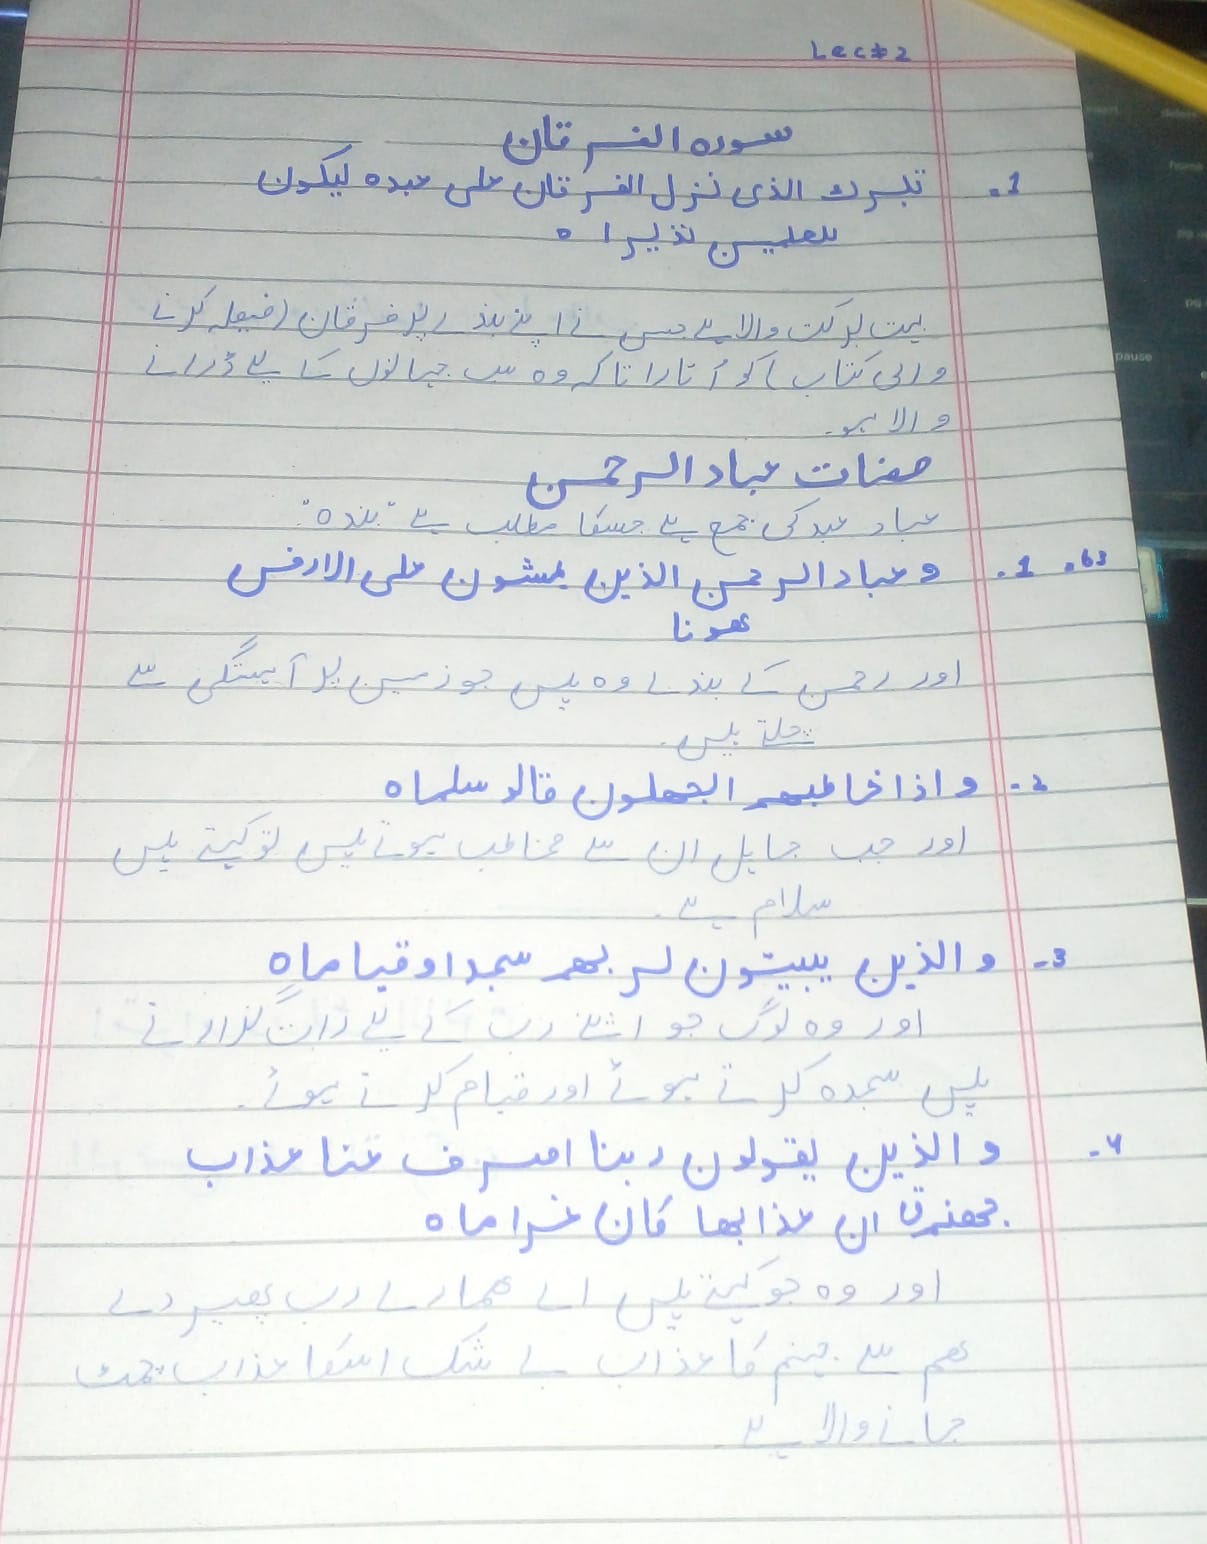 Lec#2
سورہ الفرقان
1. تبرک الذی نزل الفرقان علی عبدہ لیکون
للعلمین نذیرا ہ
بہت برکت والا ہے جس نے اپنے بندے پر فرقان (فیصلہ کرنے
والی کتاب) کو اُتارا تاکہ وہ سب جہانوں کے لیے ڈرانے
والا ہو۔
صفات عباد الرحمن
عباد عبد کی جمع ہے جسکا مطلب ہے "بندہ"۔
63. 1. و عباد الرحمن الذین یمشون علی الارض
ھونا
اور رحمن کے بندے وہ ہیں جو زمین پر آہستگی سے
چلتے ہیں۔
2- و اذا خاطبھم الجھلون قالو سلما ہ
اور جب جاہل ان سے مخاطب ہوتے ہیں تو کہتے ہیں
سلام ہے۔
3- و الذین یبیتون لربھم سجدا و قیاما ہ
اور وہ لوگ جو اپنے رب کے لیے رات گزارتے
ہیں سجدہ کرتے ہوئے اور قیام کرتے ہوئے۔
4- و الذین یقولون ربنا اصرف عنا عذاب
جھنم ق ان عذابھا کان غراما ہ
اور وہ جو کہتے ہیں اے ھمارے رب پھیر دے
ھم سے جہنم کا عذاب بے شک اسکا عذاب چمٹ
جانے والا ہے